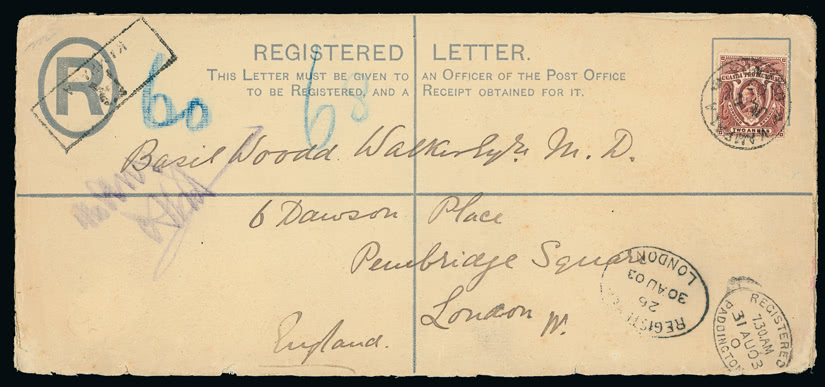 R
REGISTERED LETTER.
THIS LETTER MUST BE GIVEN TO AN OFFICER OF THE POST OFFICE
TO BE REGISTERED, AND A RECEIPT OBTAINED FOR IT.
60
68
TWO ANNAS
Basil Woodd Walker Esqre. M.D.
6 Dawson Place
Pembridge Square
London W.
England.
LONDON
30 AU 03
26
REGISTERED
7.30.AM
31 AU 03
0
PADDINGTON